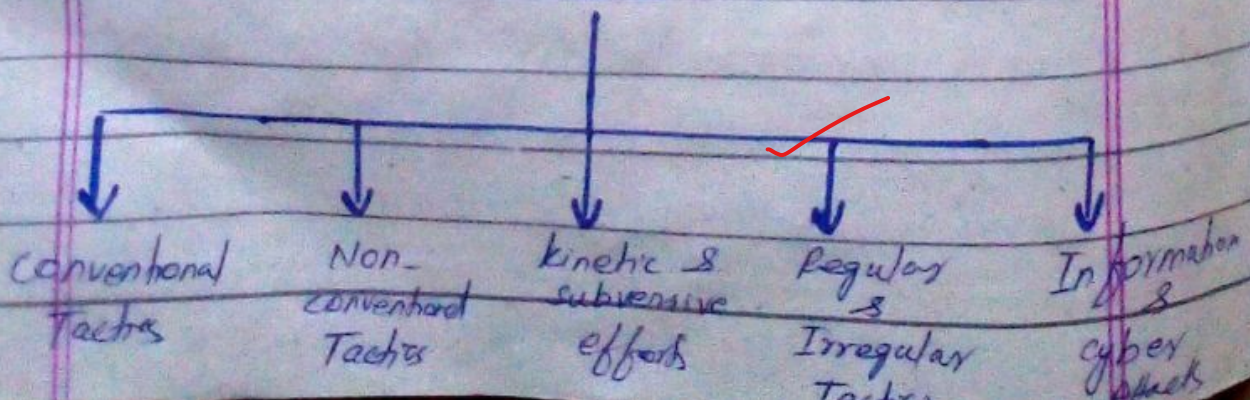 Conventional
Tactics
Non-
conventional
Tactics
kinetic &
subversive
efforts
Regular
&
Irregular
Tactics
Information
&
cyber
attacks